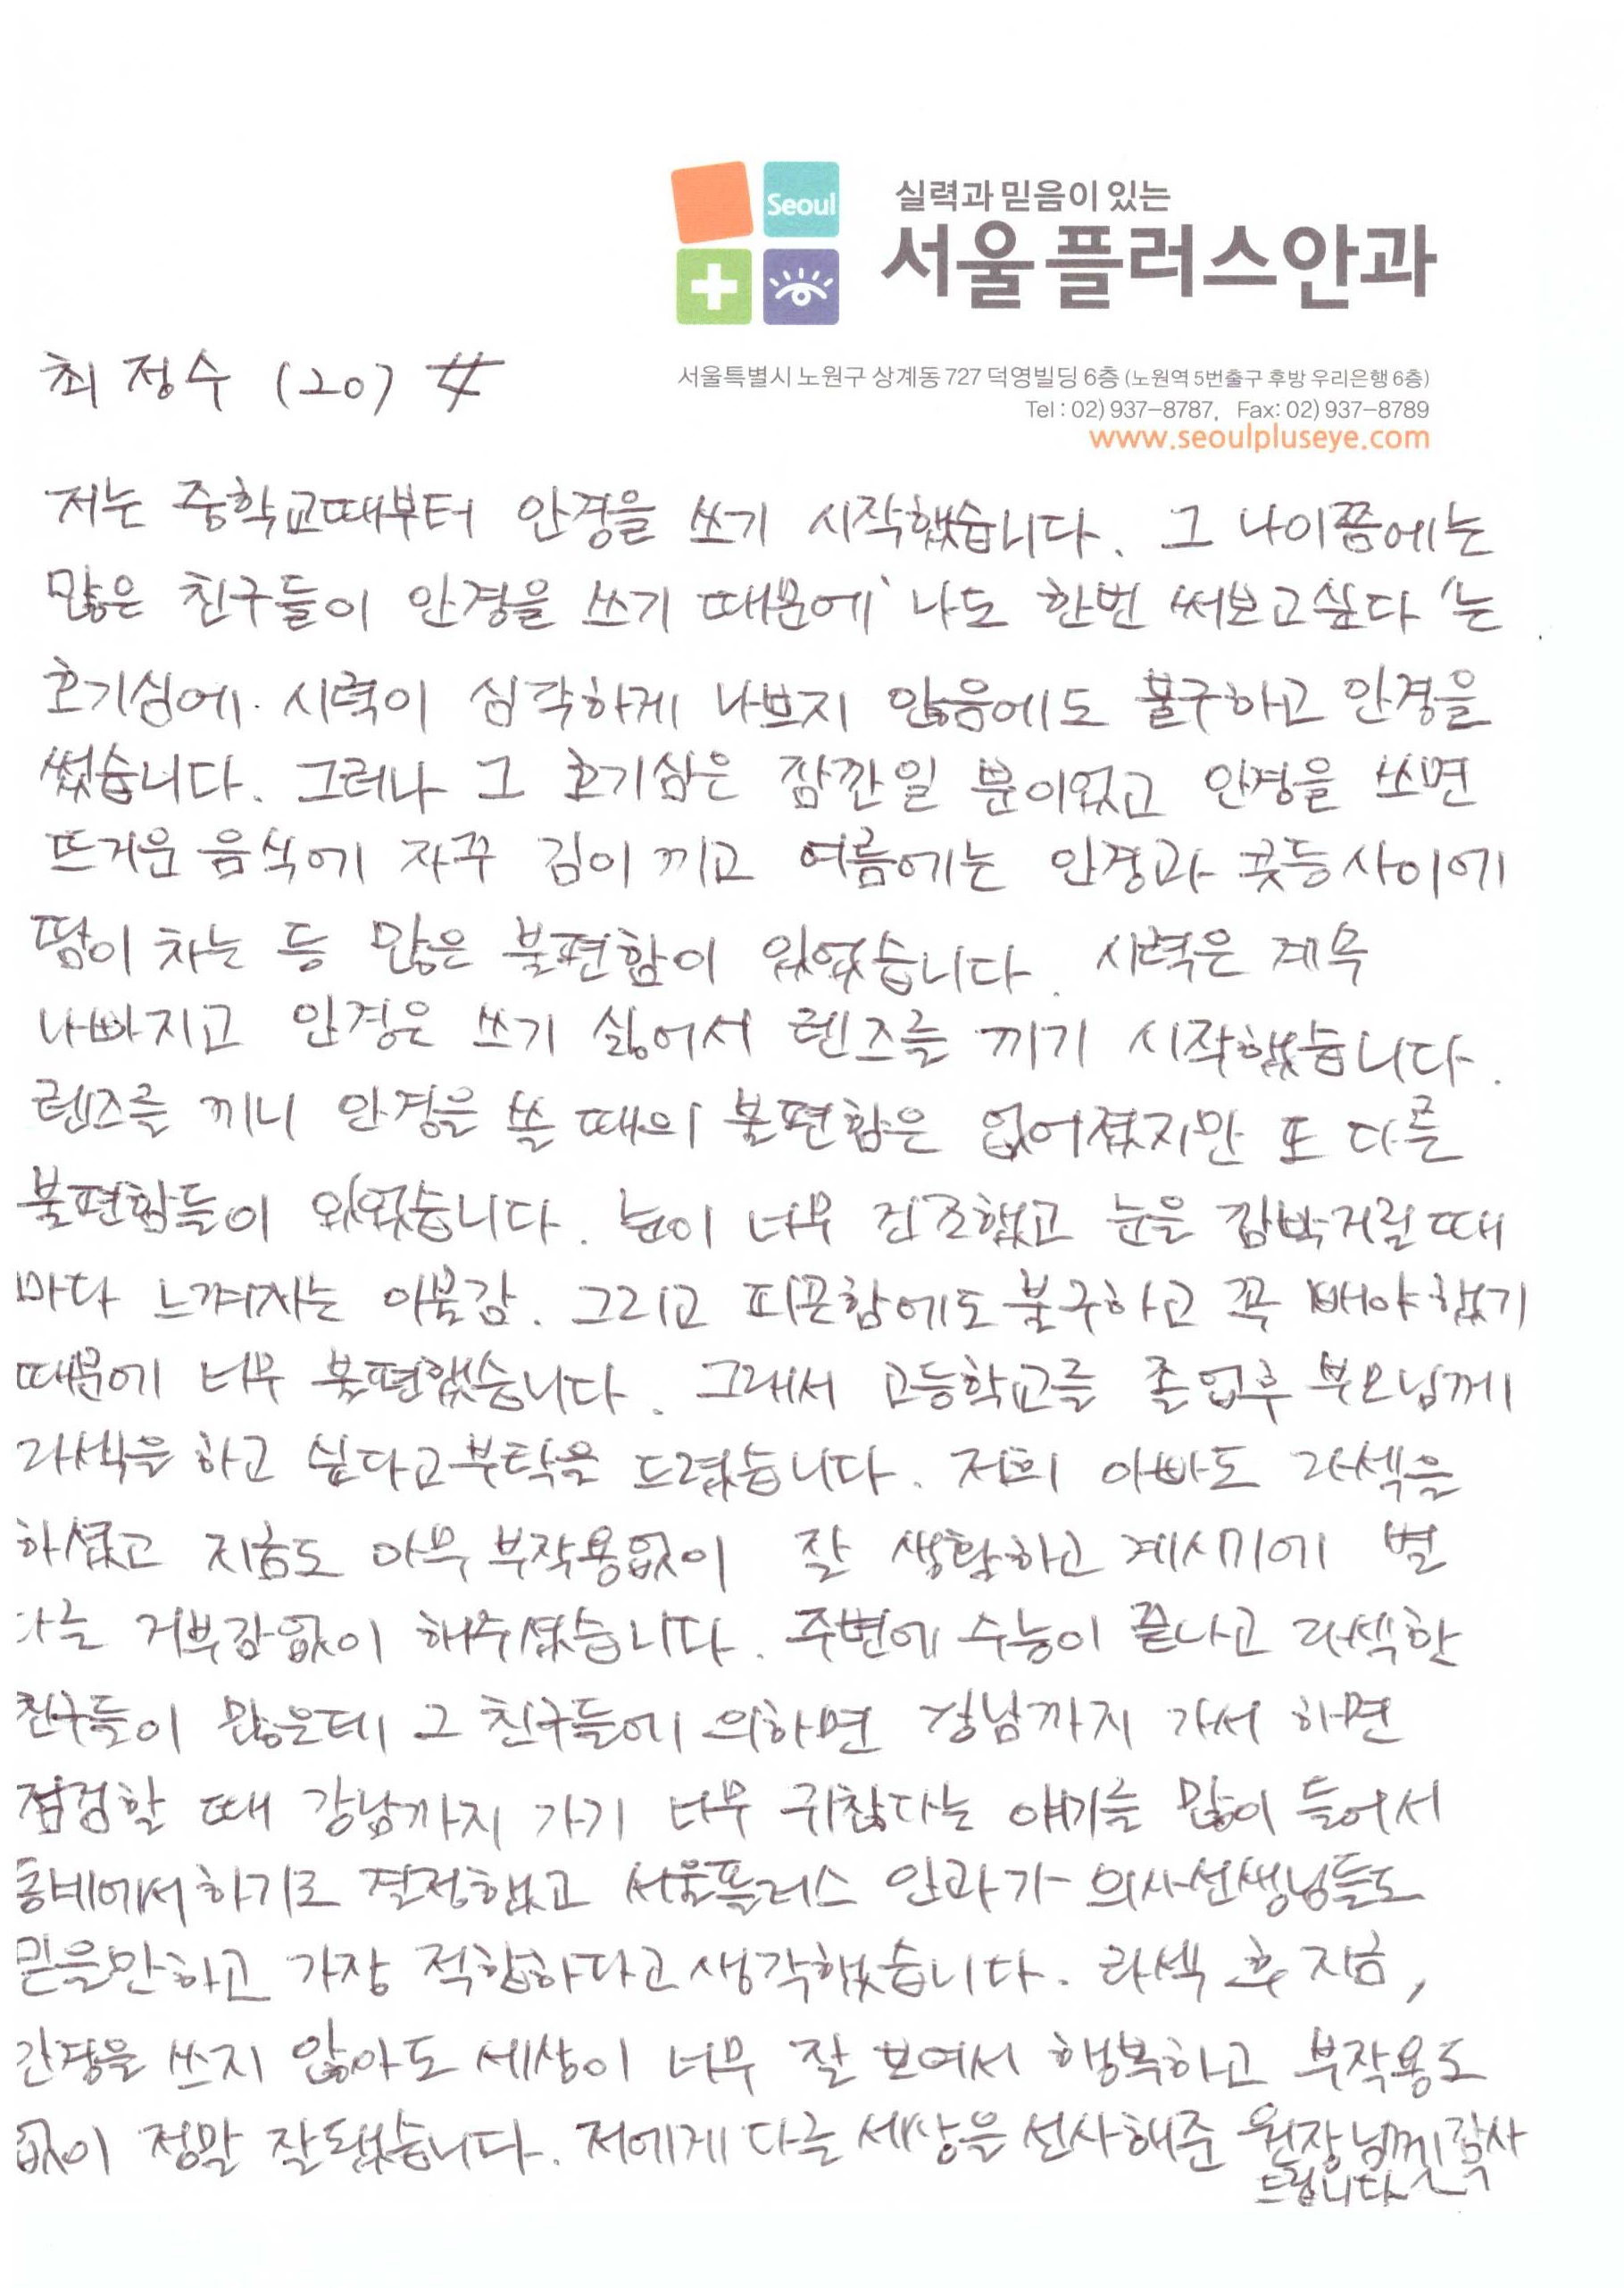 Seoul
실력과 믿음이 있는
서울플러스안과
서울특별시 노원구 상계동 727 덕영빌딩 6층 (노원역 5번출구 후방 우리은행 6층)
Tel : 02) 937-8787, Fax: 02) 937-8789
www.seoulpluseye.com
최정수 (20) 女
저는 중학교때부터 안경을 쓰기 시작했습니다. 그 나이쯤에는
많은 친구들이 안경을 쓰기 때문에 '나도 한번 써보고싶다'는
호기심에 시력이 심각하게 나쁘지 않음에도 불구하고 안경을
썼습니다. 그러나 그 호기심은 잠깐일 뿐이었고 안경을 쓰면
뜨거운 음식에 자꾸 김이 끼고 여름에는 안경과 콧등사이에
땀이 차는 등 많은 불편함이 있었습니다. 시력은 계속
나빠지고 안경은 쓰기 싫어서 렌즈를 끼기 시작했습니다.
렌즈를 끼니 안경을 쓸 때의 불편함은 없어졌지만 또 다른
불편함들이 있었습니다. 눈이 너무 건조했고 눈을 깜박거릴때
마다 느껴지는 이물감. 그리고 피곤함에도 불구하고 꼭 빼야했기
때문에 너무 불편했습니다. 그래서 고등학교를 졸업후 부모님께
라섹을 하고 싶다고 부탁을 드렸습니다. 저희 아빠도 라섹을
하셨고 지금도 아무 부작용없이 잘 생활하고 계시기에 별
다른 거부감없이 해주셨습니다. 주변에 수능이 끝나고 라섹한
친구들이 많은데 그 친구들에 의하면 강남까지 가서 하면
점검할 때 강남까지 가기 너무 귀찮다는 얘기를 많이 들어서
동네에서 하기로 결정했고 서울플러스 안과가 의사선생님들도
믿을만하고 가장 적합하다고 생각했습니다. 라섹 후 지금,
안경을 쓰지 않아도 세상이 너무 잘 보여서 행복하고 부작용도
없이 정말 잘됐습니다. 저에게 다른 세상을 선사해준 원장님께 감사
드립니다